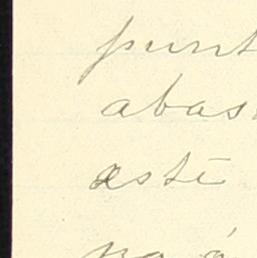 punt
abas
esté